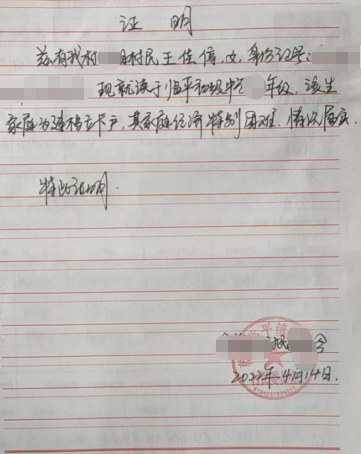 证明
兹有我村村民王佳停,女,身份证号:
现就读于临平初级中学 年级。该生
家庭为建档立卡户,其家庭经济特别困难,情况属实。
特此证明.
2022年4月14日.